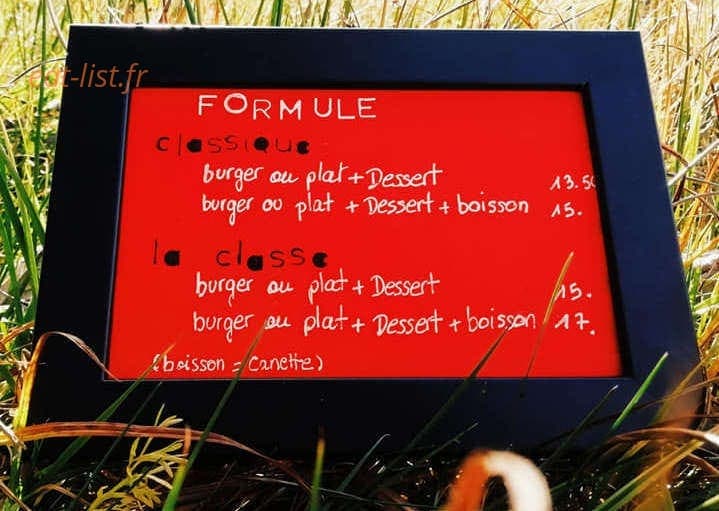 eat-list.fr
FORMULE
classique
burger ou plat + Dessert 13.50
burger ou plat + Dessert + boisson 15.
la classe
burger ou plat + Dessert 15.
burger ou plat + Dessert + boisson 17.
(boisson = Canette)